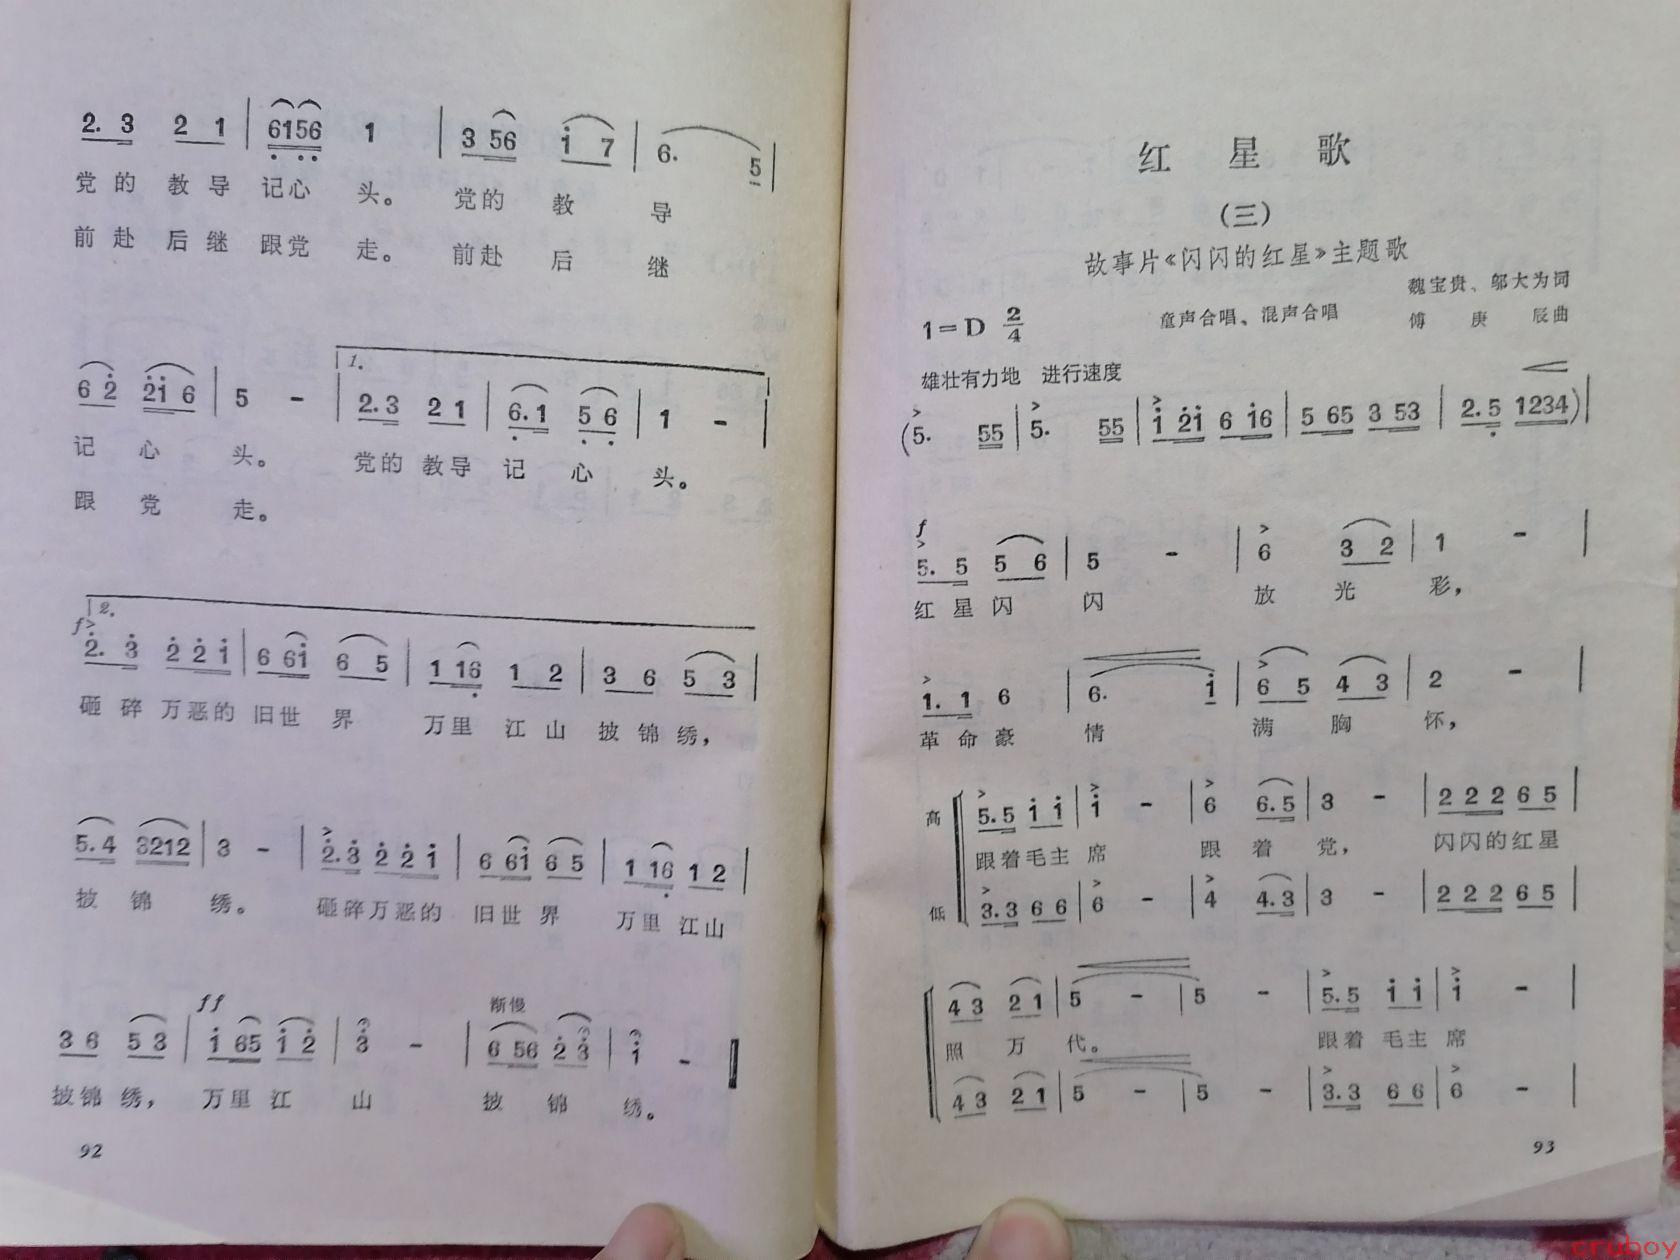 2. 3 2 1 | 6156 1 | 3 56 i 7 | 6. 5 |
党的 教导 记心 头。 党的 教 导
前赴 后继 跟党 走。 前赴 后 继
1.
6 2 2i 6 | 5 - | 2.3 2 1 | 6.1 5 6 | 1 - |
记 心 头。 党的 教导 记 心 头。
跟 党 走。
2.
f>
2. 3 2 2 i | 6 6i 6 5 | 1 16 1 2 | 3 6 5 3 |
砸 碎 万恶的 旧世 界 万里 江山 披 锦 绣，
5.4 3212 | 3 - | 2.3 2 2 i | 6 6i 6 5 | 1 16 1 2 |
披 锦 绣。 砸碎万恶的 旧世 界 万里 江山
ff 渐慢
3 6 5 3 | i 65 i 2 | 3 - | 6 56 2 3 | i -
披锦 绣， 万里 江 山 披 锦 绣。
92
红 星 歌
（三）
故事片《闪闪的红星》主题歌
魏宝贵、邬大为词
1=D 2/4 童声合唱、混声合唱 傅 庚 辰曲
雄壮有力地 进行速度
(5. 55 | 5. 55 | i 2i 6 i6 | 5 65 3 53 | 2.5 1234) |
f
5. 5 5 6 | 5 - | 6 3 2 | 1 - |
红 星 闪 闪 放 光 彩，
1. 1 6 | 6. i | 6 5 4 3 | 2 - |
革 命 豪 情 满 胸 怀，
高 5.5 i i | i - | 6 6.5 | 3 - | 2 2 2 6 5 |
跟着毛主 席 跟 着 党， 闪闪的红星
低 3.3 6 6 | 6 - | 4 4.3 | 3 - | 2 2 2 6 5 |
4 3 2 1 | 5 - | 5 - | 5.5 i i | i - |
照 万 代。 跟着 毛主 席
4 3 2 1 | 5 - | 5 - | 3.3 6 6 | 6 - |
93
cruboy